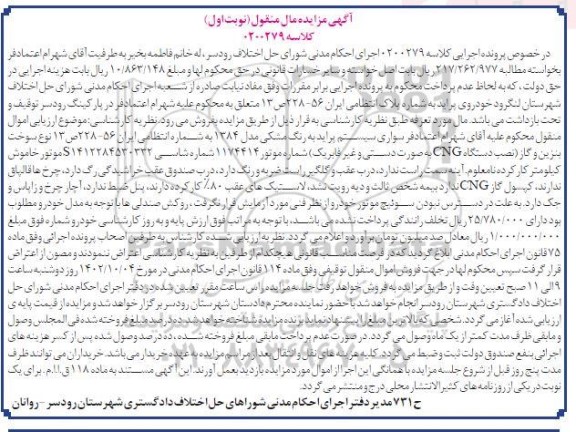 آگهی مزایده مال منقول (نوبت اول)
کلاسه ۰۲۰۰۲۷۹
در خصوص پرونده اجرایی کلاسه ۰۲۰۰۲۷۹ اجرای احکام مدنی شورای حل اختلاف رودسر، له خانم فاطمه بخیر به طرفیت آقای شهرام اعتمادفر
بخواسته مطالبه ۲۱۷/۲۶۲/۹۷۷ ریال بابت اصل خواسته و سایر خسارات قانونی در حق محکوم لها و مبلغ ۱۰/۸۶۳/۱۴۸ ریال بابت هزینه اجرایی در
حق دولت، که به لحاظ عدم پرداخت محکوم به پرونده اجرایی برابر مقررات و وفق مفاد نیابت صادره از شعبه اجرای احکام مدنی شورای حل اختلاف
شهرستان لنگرود خودروی پراید به شماره پلاک انتظامی ایران ۵۶-۲۲۸ص۱۳ متعلق به محکوم علیه شهرام اعتمادفر در پارکینگ رودسر توقیف و
تحت بازداشت می باشد. مال مورد تعرفه طبق نظریه کارشناسی به قرار ذیل از طریق مزایده بفروش می رود. نظریه کارشناسی: موضوع ارزیابی اموال
منقول محکوم علیه آقای شهرام اعتمادفر سواری سیستم پراید به رنگ مشکی مدل ۱۳۸۴ به شماره انتظامی ایران ۵۶-۲۲۸ص۱۳ نوع سوخت
بنزین و گاز (نصب دستگاه CNG به صورت دستی و غیر فابریک) شماره موتور ۱۱۷۴۴۱۴ شماره شاسی S۱۴۱۲۲۸۴۵۳۰۲۳۲ موتور خاموش
کیلومتر کار کرده نامعلوم. آینه سمت راست ندارد، درب عقب و گلگیر راست ضربه و رنگ دارد، درب صندوق عقب خراشیدگی رگ دارد، چرخ ها قالپاق
ندارند، کپسول گاز CNG ندارد بیمه شخص ثالث و دیه رویت نشد، لاستیک های عقب ۸۰٪ کار کرده دارند، پنل ضبط ندارد، آچار چرخ و زاپاس و
جک دارد. به علت در دسترس نبودن سوئیچ موتور خودرو از نظر فنی مورد آزمایش قرار نگرفت، روکش صندلی ها با توجه به مدل خودرو مطلوب
بود دارای ۲۵/۷۸۰/۰۰۰ ریال تخلف رانندگی پرداخت نشده می باشد، با توجه به مراتب فوق ارزش پایه و به روز کارشناسی خودرو شماره فوق مبلغ
۱/۰۰۰/۰۰۰/۰۰۰ ریال معادل صد میلیون تومان برآورد و اعلام می گردد. نظریه ارزیابی شده کارشناس به طرفین اصحاب پرونده اجرائی وفق ماده
۷۵ قانون اجرای احکام مدنی ابلاغ گردید که در فرصت مناسب قانونی هیچکدام از طرفین به نظریه کارشناسی اعتراض ننمودند و مصون از اعتراض
قرار گرفت سپس محکوم لها در جهت فروش اموال منقول توقیفی وفق ماده ۱۱۴ قانون اجرای احکام مدنی در مورخ ۱۴۰۲/۱۰/۰۴ روز دوشنبه ساعت
۹ الی ۱۱ صبح تعیین وقت و از طریق مزایده به فروش خواهد رفت جلسه مزایده راس ساعت مقرر تعیین شده در دفتر اجرای احکام مدنی شورای حل
اختلاف دادگستری شهرستان رودسر انجام خواهد شد با حضور نماینده محترم دادستان شهرستان رودسر برگزار خواهد شد و مزایده از قیمت پایه ی
ارزیابی شده آغاز می گردد. شخصی که بالاترین مبلغ را پیشنهاد نماید برنده مزایده شناخته خواهد شد ده درصد مبلغ فروخته شده فی المجلس وصول
و مابقی ظرف مدت کمتر از یک ماه وصول می گردد. در صورت عدم پرداخت مابقی مبلغ فروخته شده، ده درصد وصول شده پس از کسر هزینه های
اجرائی بنفع صندوق دولت ثبت و ضبط می گردد. کلیه هزینه های نقل و انتقال بعد از مزایده به عهده خریدار می باشد. خریداران می توانند ظرف
مدت پنج روز قبل از شروع جلسه مزایده با هماهنگی این اجرا از اموال مورد مزایده بازدید بعمل آورند. این آگهی مستند به ماده ۱۱۸ ق.ا.م. برای یک
نوبت در یکی از روزنامه های کثیرالانتشار محلی درج و منتشر می گردد.
ح ۷۳۱ مدیر دفتر اجرای احکام مدنی شوراهای حل اختلاف دادگستری شهرستان رودسر - روانان